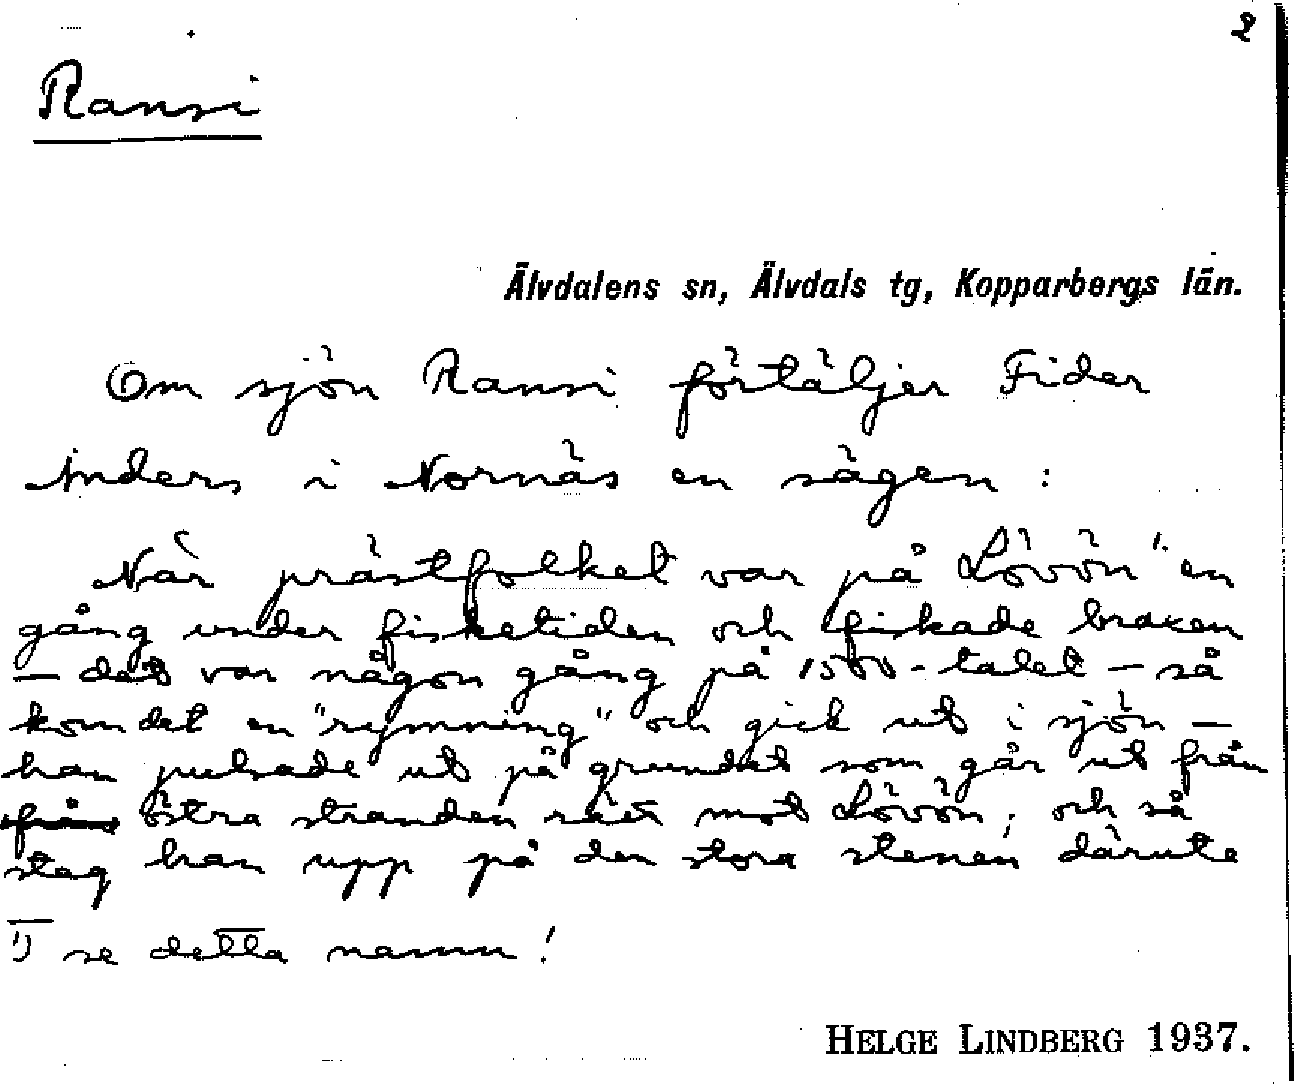 2
Ransi
Älvdalens sn, Älvdals tg, Kopparbergs län.
Om sjön Ransi förtäljer Fider
Anders i Nornäs en sägen:
När prästfolket var på Lövön 1) en
gång under fisketiden och fiskade braxen
– det var någon gång på 1500-talet – så
kom det en "rymning" och gick ut i sjön –
han pulsade ut på grundet som går ut från
från östra stranden rätt mot Lövön; och så
steg han upp på den stora stenen därute
1) se detta namn!
HELGE LINDBERG 1937.